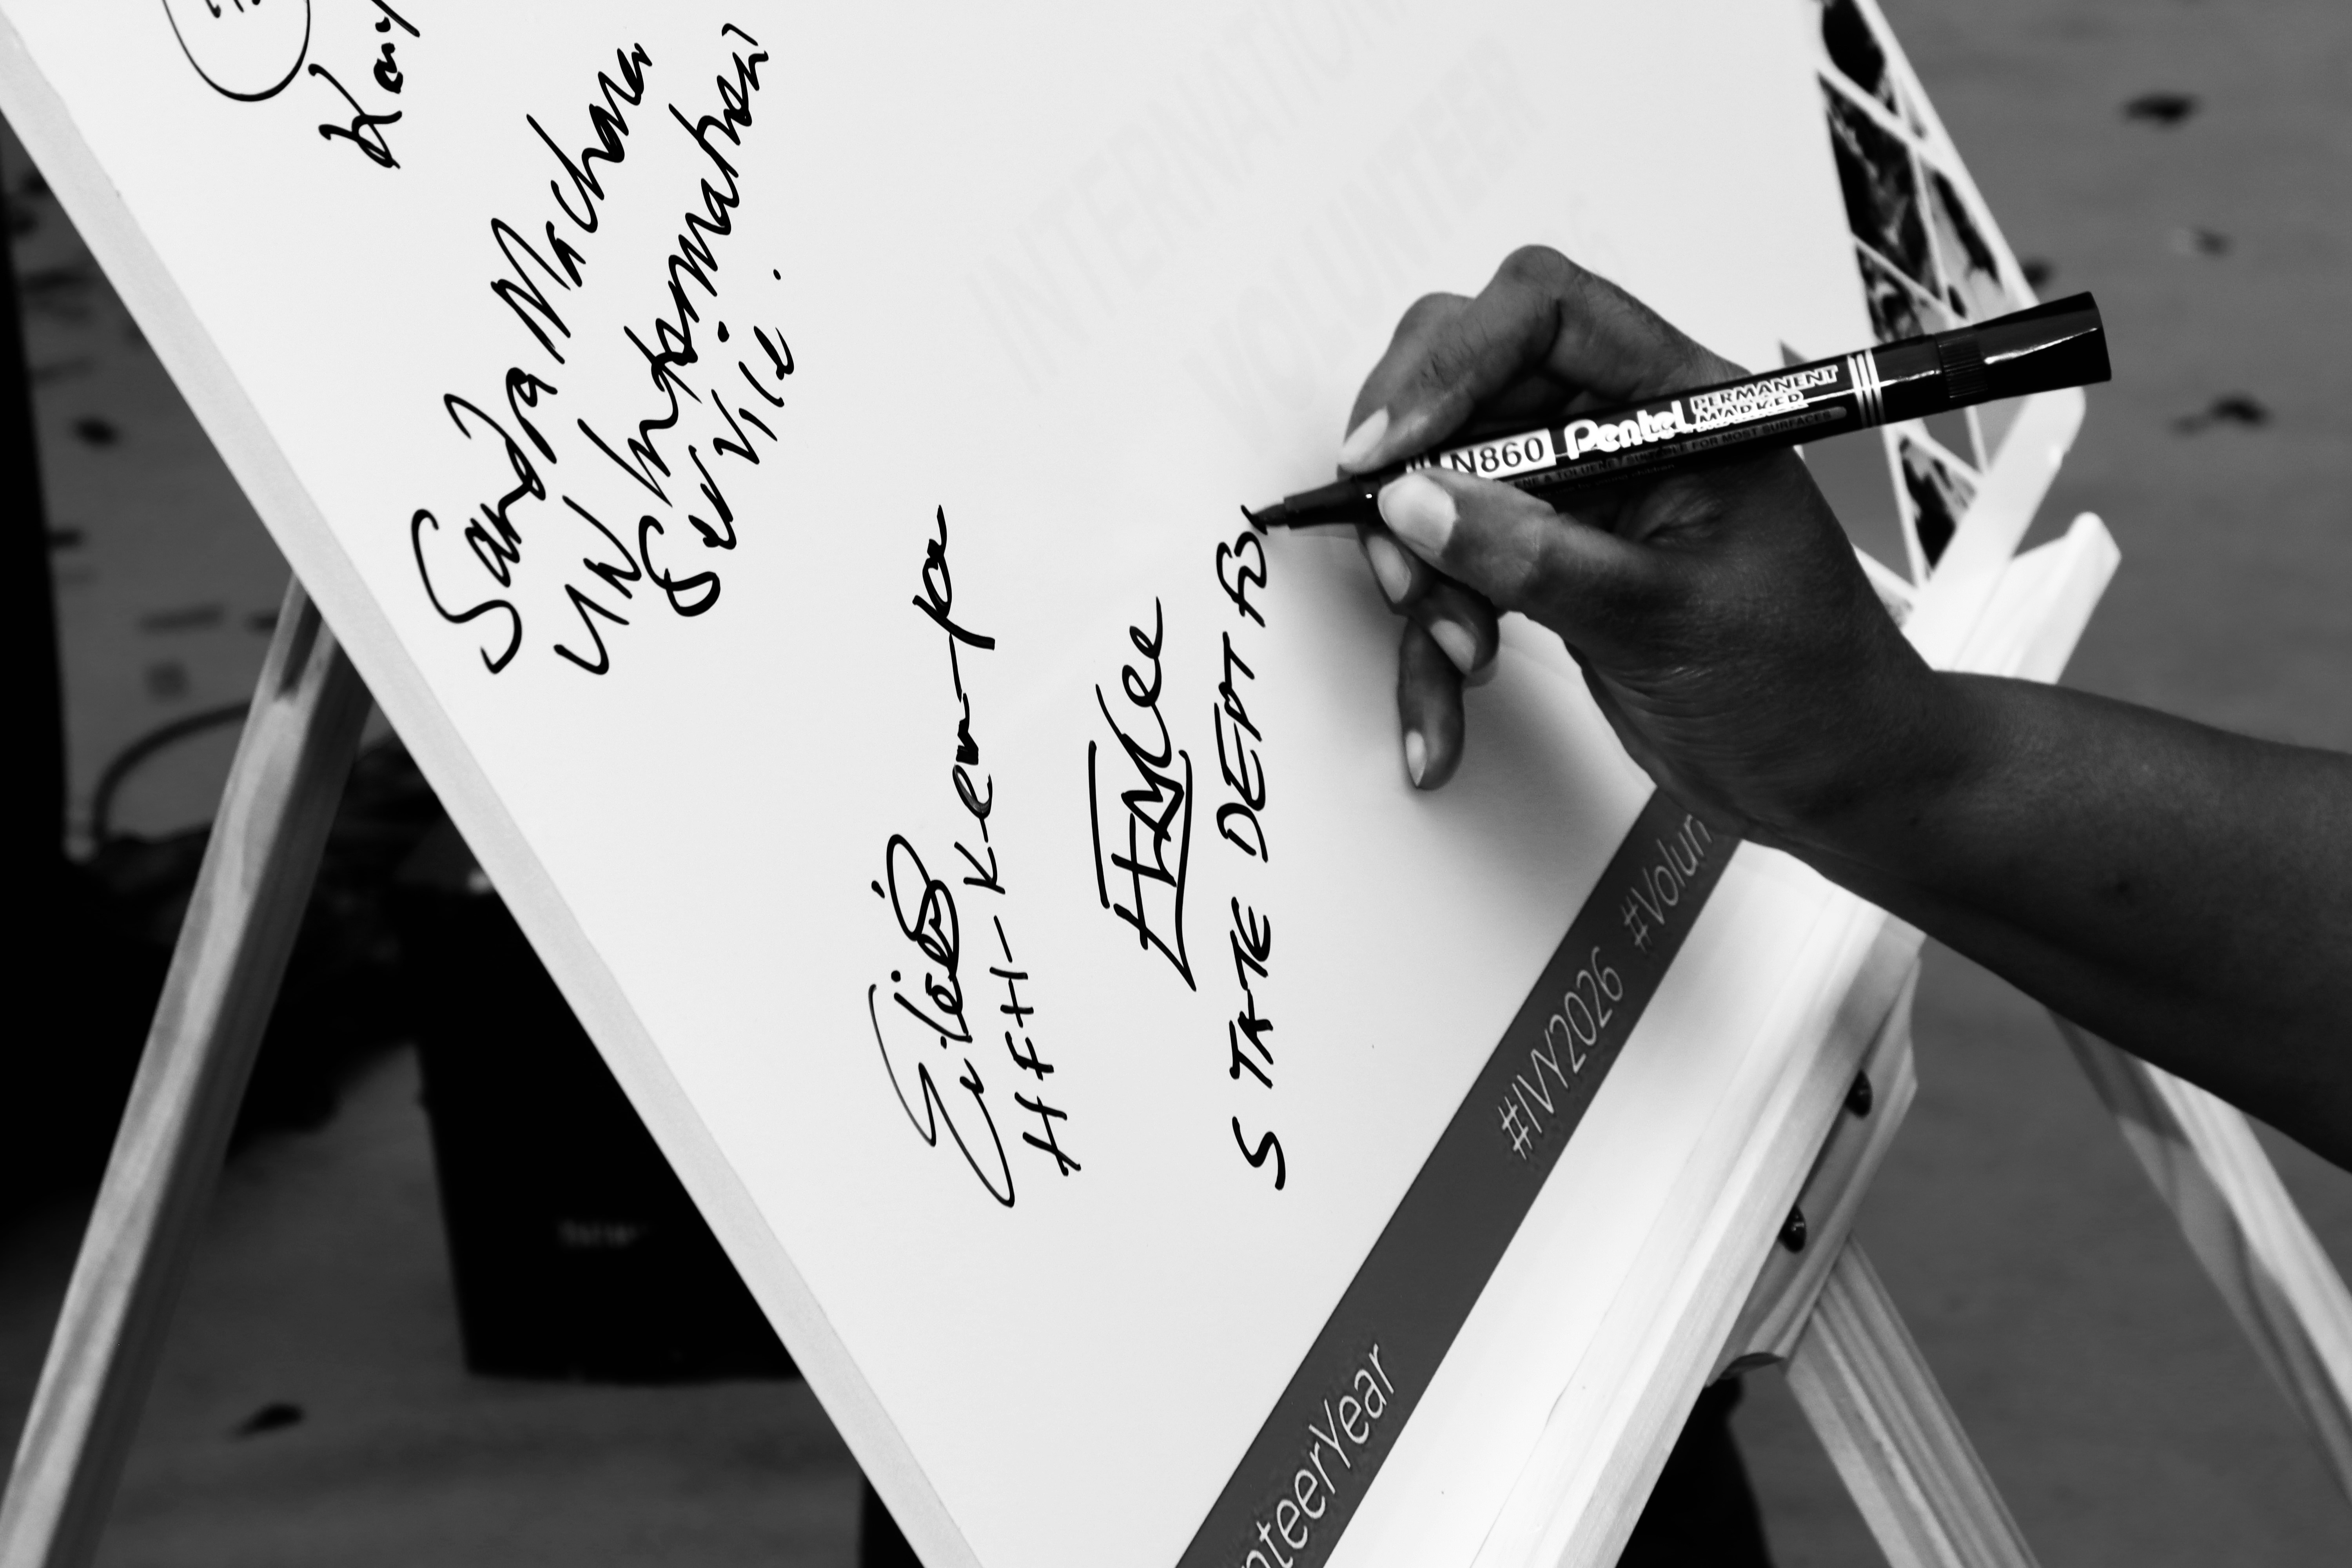 Sandra Macharia
UN Information
Service.
HFH-Kenya
STATE DEPT for
INTERNATIONAL
VOLUNTEER
N860 Pentel PERMANENT
MARKER
#IVY2026 #Volun
nteerYear